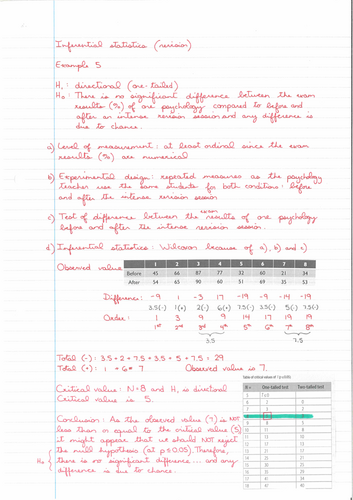 Inferential statistics (revision)
Example 5
H₁ : directional (one-tailed)
H₀ : There is no significant difference between the exam
results (%) of one psychology compared to before and
after an intense revision session and any difference is
due to chance.
a) Level of measurement : at least ordinal since the exam
results (%) are numerical
b) Experimental design : repeated measures as the psychology
teacher use the same students for both conditions : before
and after the intense revision session
c) Test of difference between the exam results of one psychology
before and after the intense revision session.
d) Inferential statistics : Wilcoxon because of a), b) and c)
1 2 3 4 5 6 7 8
Observed value Before 45 66 87 77 32 60 21 34
After 54 65 90 60 51 69 35 53
Difference: -9 1 -3 17 -19 -9 -14 -19
3.5(-) 1(+) 2(-) 6(+) 7.5(-) 3.5(-) 5(-) 7.5(-)
Order: 1 3 9 9 14 17 19 19
1st 2nd 3rd 4th 5th 6th 7th 8th
3.5 7.5
Total (-) : 3.5 + 2 + 7.5 + 3.5 + 5 + 7.5 : 29
Total (+) : 1 + 6 = 7 Observed value is 7.
Critical value : N=8 and H₁ is directional
Critical value is 5.
Conclusion : As the observed value (7) is NOT
less than or equal to the critical value (5)
it might appear that we should NOT reject
the null hypothesis (at p≤0.05). Therefore,
H₀ { there is no significant difference ... and any
difference is due to chance.
N = One-tailed test Two-tailed test